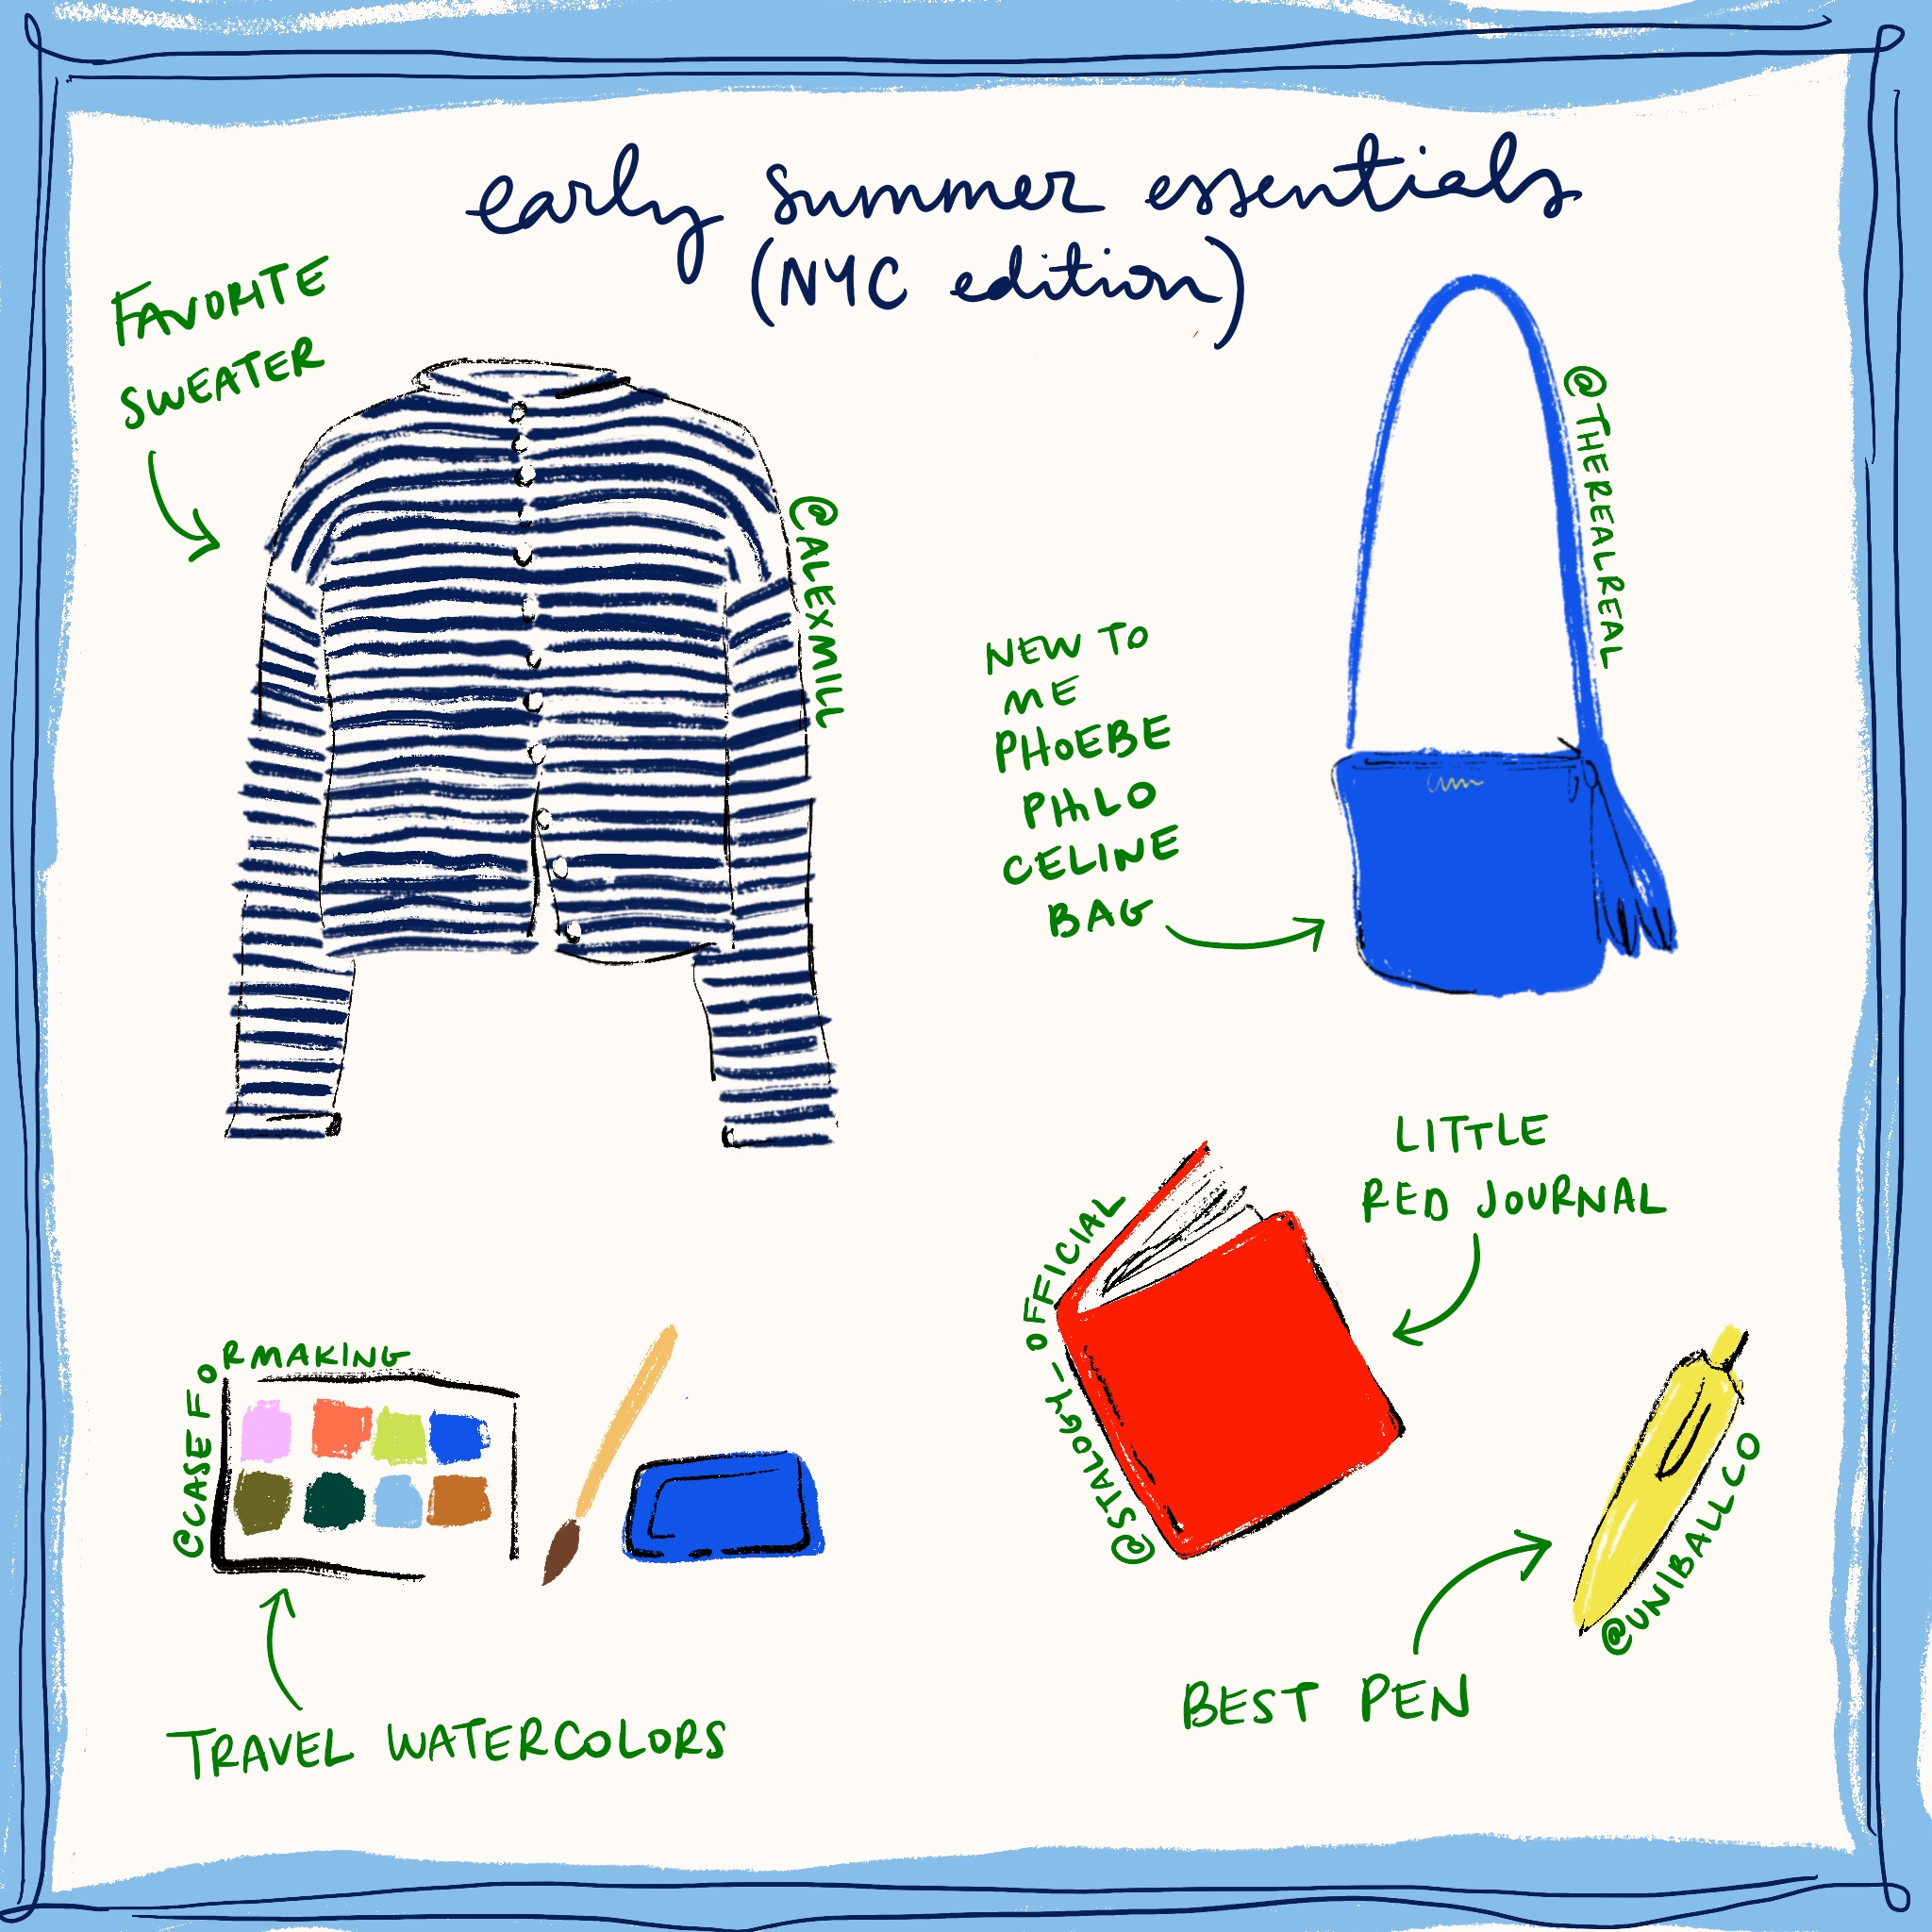 early summer essentials
(NYC edition)
FAVORITE
SWEATER
@ALEXMILL
@THEREALREAL
NEW TO
ME
PHOEBE
PHILO
CELINE
BAG
LITTLE
RED JOURNAL
@STALOGY_OFFICIAL
@CASEFORMAKING
TRAVEL WATERCOLORS
@UNIBALLCO
BEST PEN